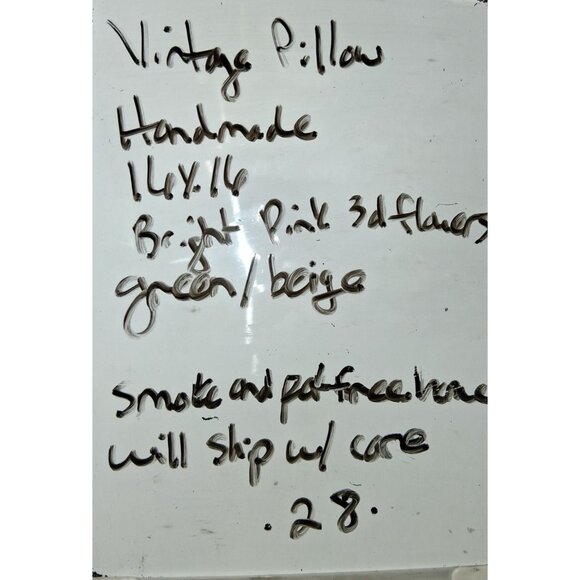 Vintage Pillow
Handmade
16X16
Bright Pink 3d flowers
green/beige
smoke and pet free home
will ship w/ care
.28.